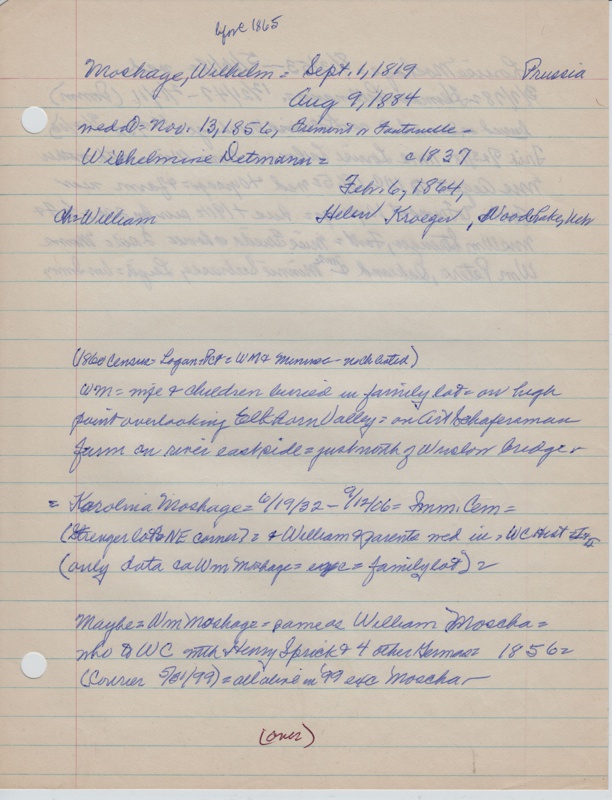 before 1865
Moshage, Wilhelm = Sept. 1, 1819 Prussia
Aug 9, 1884
med D = Nov. 13, 1856, Fremont or Fontanelle =
Wilhelmine Detmann = c1837
Feb. 6, 1864,
ch = William Helen Kroeger, Wood Lake, Neb
(1860 Census = Logan Pct = WM & Minnie - no ch listed)
WM = wife & children buried in family lot = on high
point overlooking Elkhorn Valley = on Art Schafersman
farm on river east side = just north of Winslow bridge
= Karolina Moshage = 6/19/32 - 9/12/06 = Imm. Cem =
(Strenger lot NE corner) = & William & parents med in = WC Hist
(only data on Wm Moshage = exc = family lot) =
Maybe = Wm Moshage = same as William Moscha =
who to WC with Henry Sprick & 4 other Germans = 1856 =
(Courier 5/31/99) = all alive in '99 exc Moscha
(over)